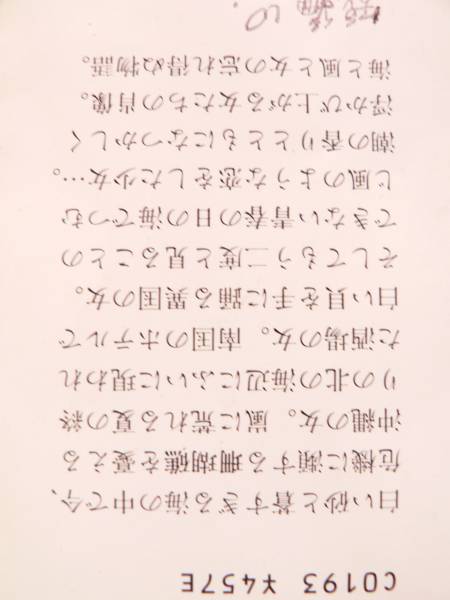 C0193 ¥457E
白い砂と蒼すぎる海の中で今、
危機に瀕する珊瑚礁を憂える
沖縄の女。嵐に荒れる夏の終
りの北の海辺にふいに現われ
た酒場の女。南国のホテルで
白い貝を手に踊る異国の女。
そしてもう二度と見ることの
できない青春の日の海でむつ
じ風のような恋をした少女…。
潮の香りとともになつかしく
浮かび上がる女たちの肖像。
海と風と女の忘れ得ぬ物語。